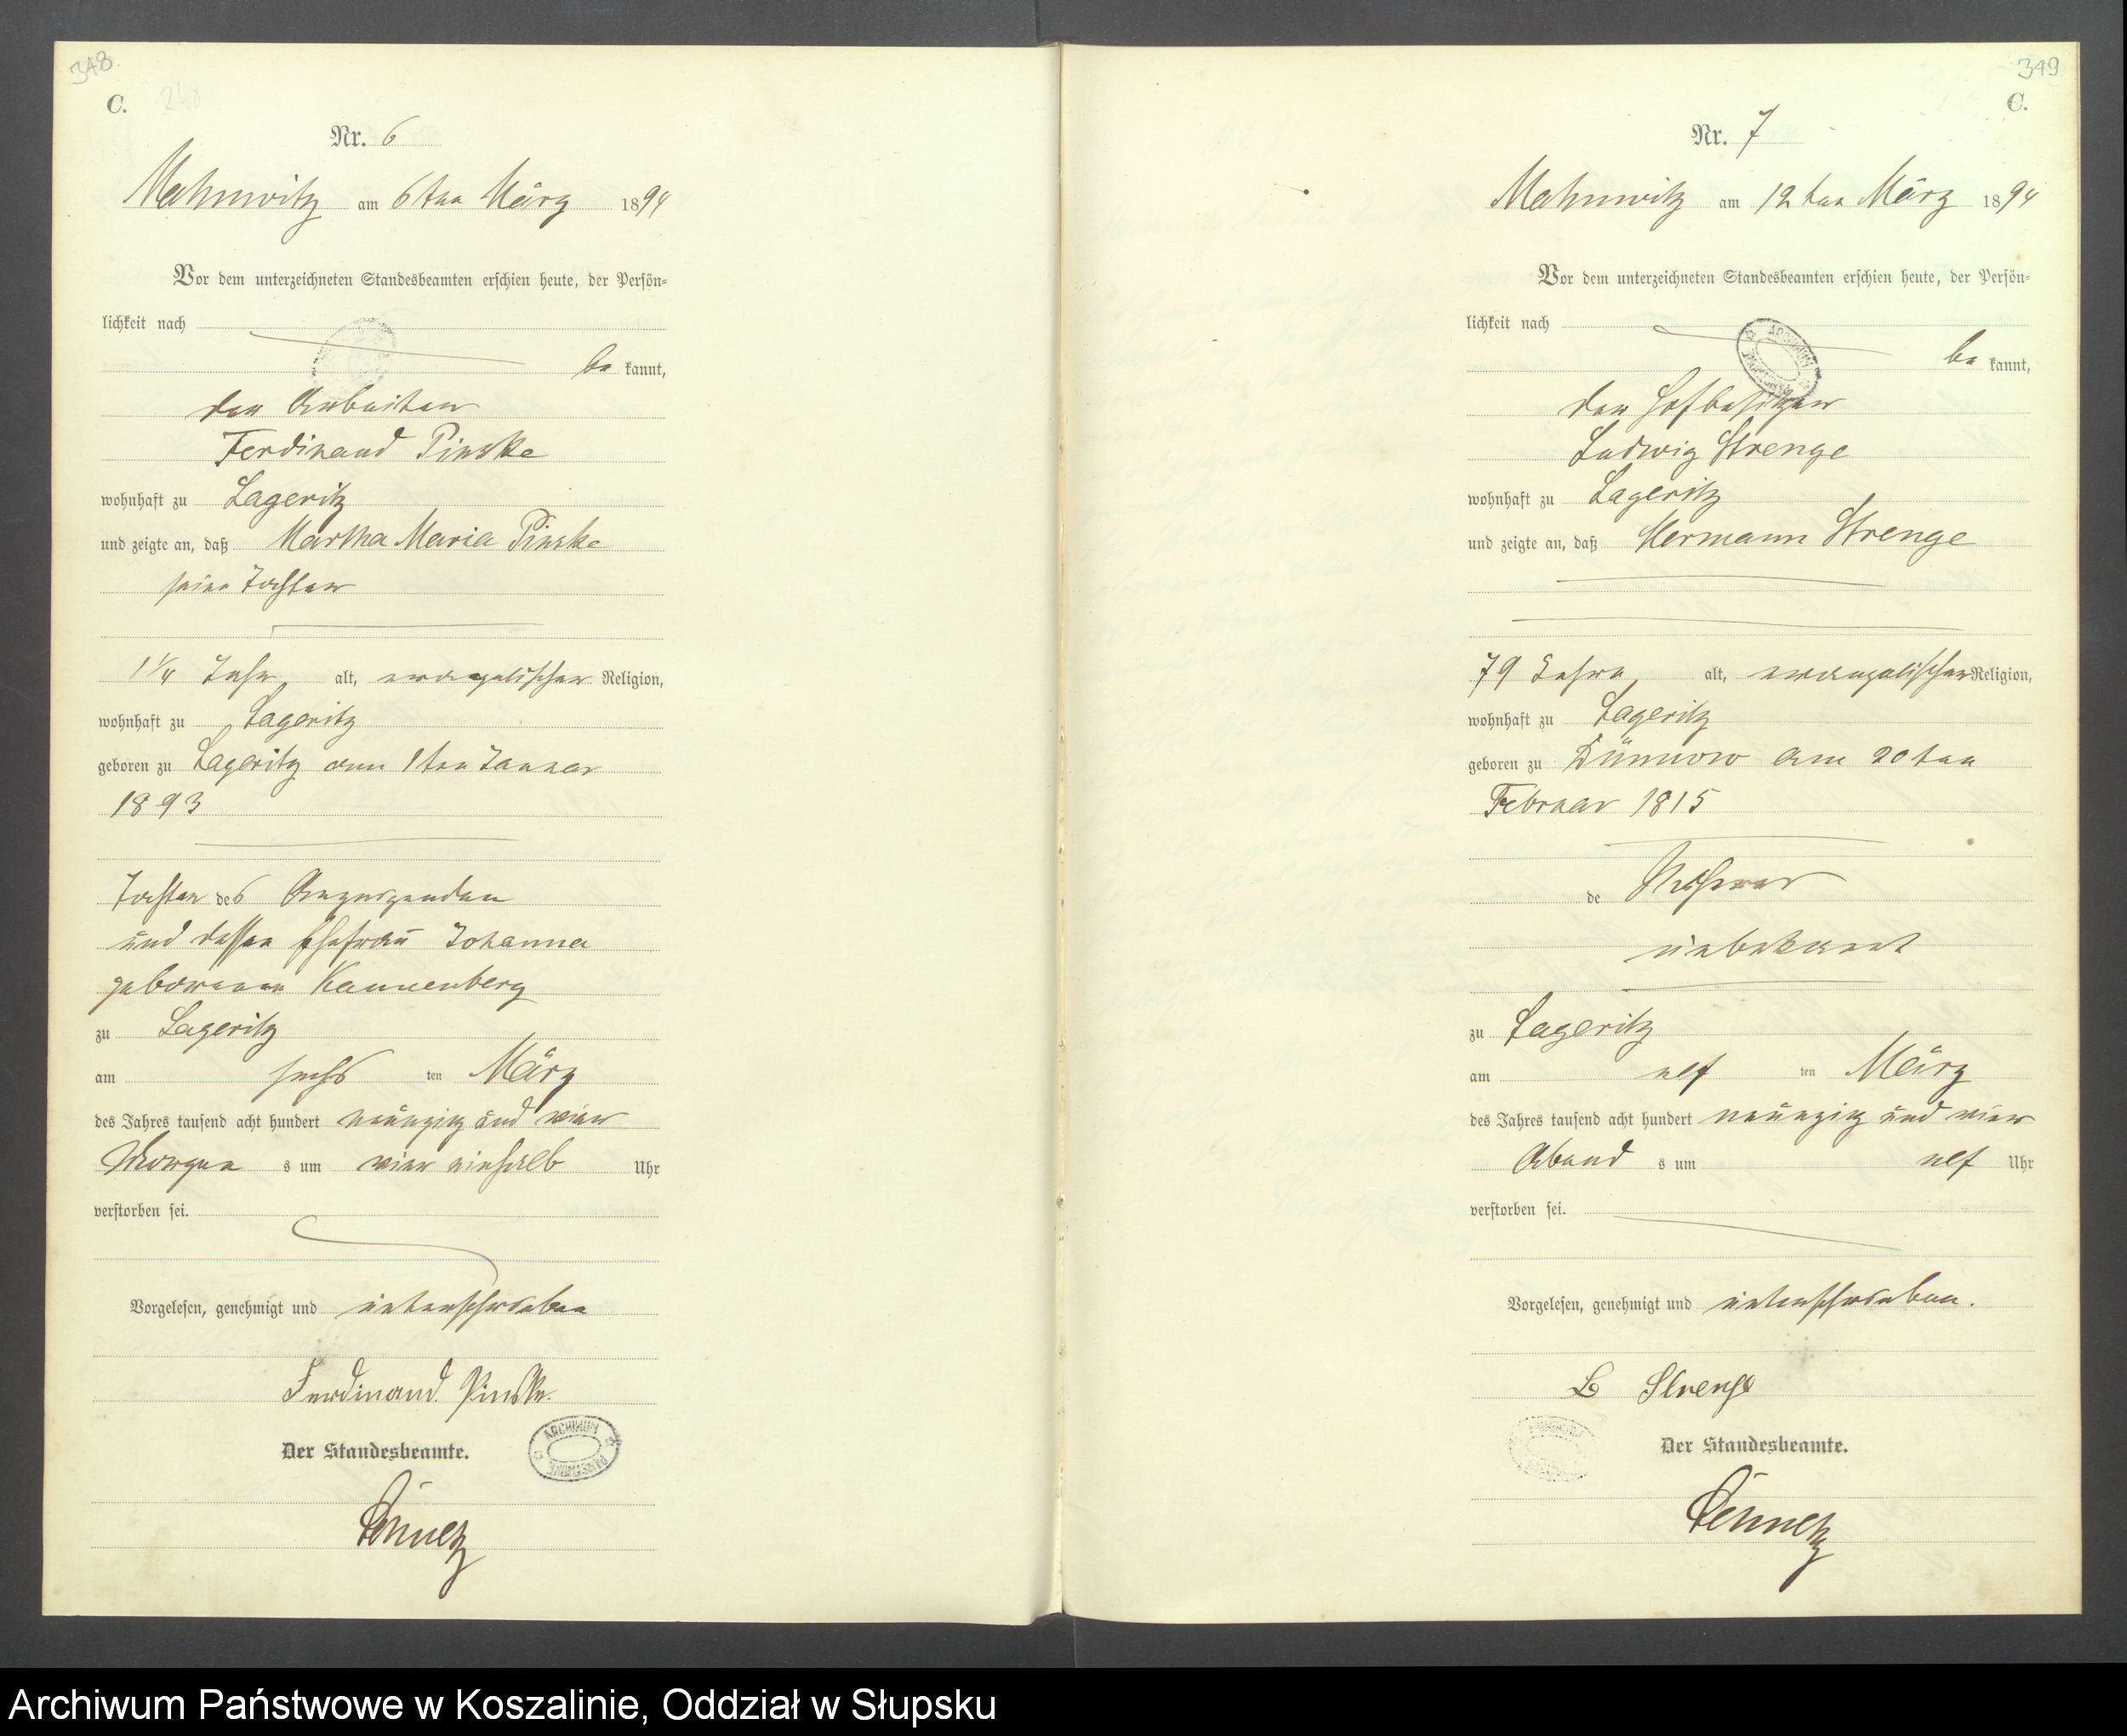 348
C.
Nr. 6
Mahnwitz am 6ten März 1894
Vor dem unterzeichneten Standesbeamten erschien heute, der Persön-
lichkeit nach
be kannt,
der Arbeiter
Ferdinand Pinske
wohnhaft zu Lageritz
und zeigte an, daß Martha Maria Pinske
seine Tochter
1 1/4 Jahr alt, evangelischer Religion,
wohnhaft zu Lageritz
geboren zu Lageritz am 1ten Januar
1893
Tochter des Anzeigenden
und dessen Ehefrau Johanna
geborenen Kannenberg
zu Lageritz
am sechs ten März
des Jahres tausend acht hundert neunzig und vier
Morgen s um vier einhalb Uhr
verstorben sei.
Vorgelesen, genehmigt und unterschrieben
Ferdinand Pinske.
Der Standesbeamte.
ARCHIWUM PAŃSTWOWE
349
C.
Nr. 7
Mahnwitz am 12ten März 1894
Vor dem unterzeichneten Standesbeamten erschien heute, der Persön-
lichkeit nach
be kannt,
der Hofbesitzer
Ludwig Strenge
wohnhaft zu Lageritz
und zeigte an, daß Hermann Strenge
79 Jahre alt, evangelischer Religion,
wohnhaft zu Lageritz
geboren zu Dünnow am 20ten
Februar 1815
de
unbekannt
zu Lageritz
am elf ten März
des Jahres tausend acht hundert neunzig und vier
Abend s um elf Uhr
verstorben sei.
Vorgelesen, genehmigt und unterschrieben.
L Strenge
Der Standesbeamte.
Archiwum Państwowe w Koszalinie, Oddział w Słupsku